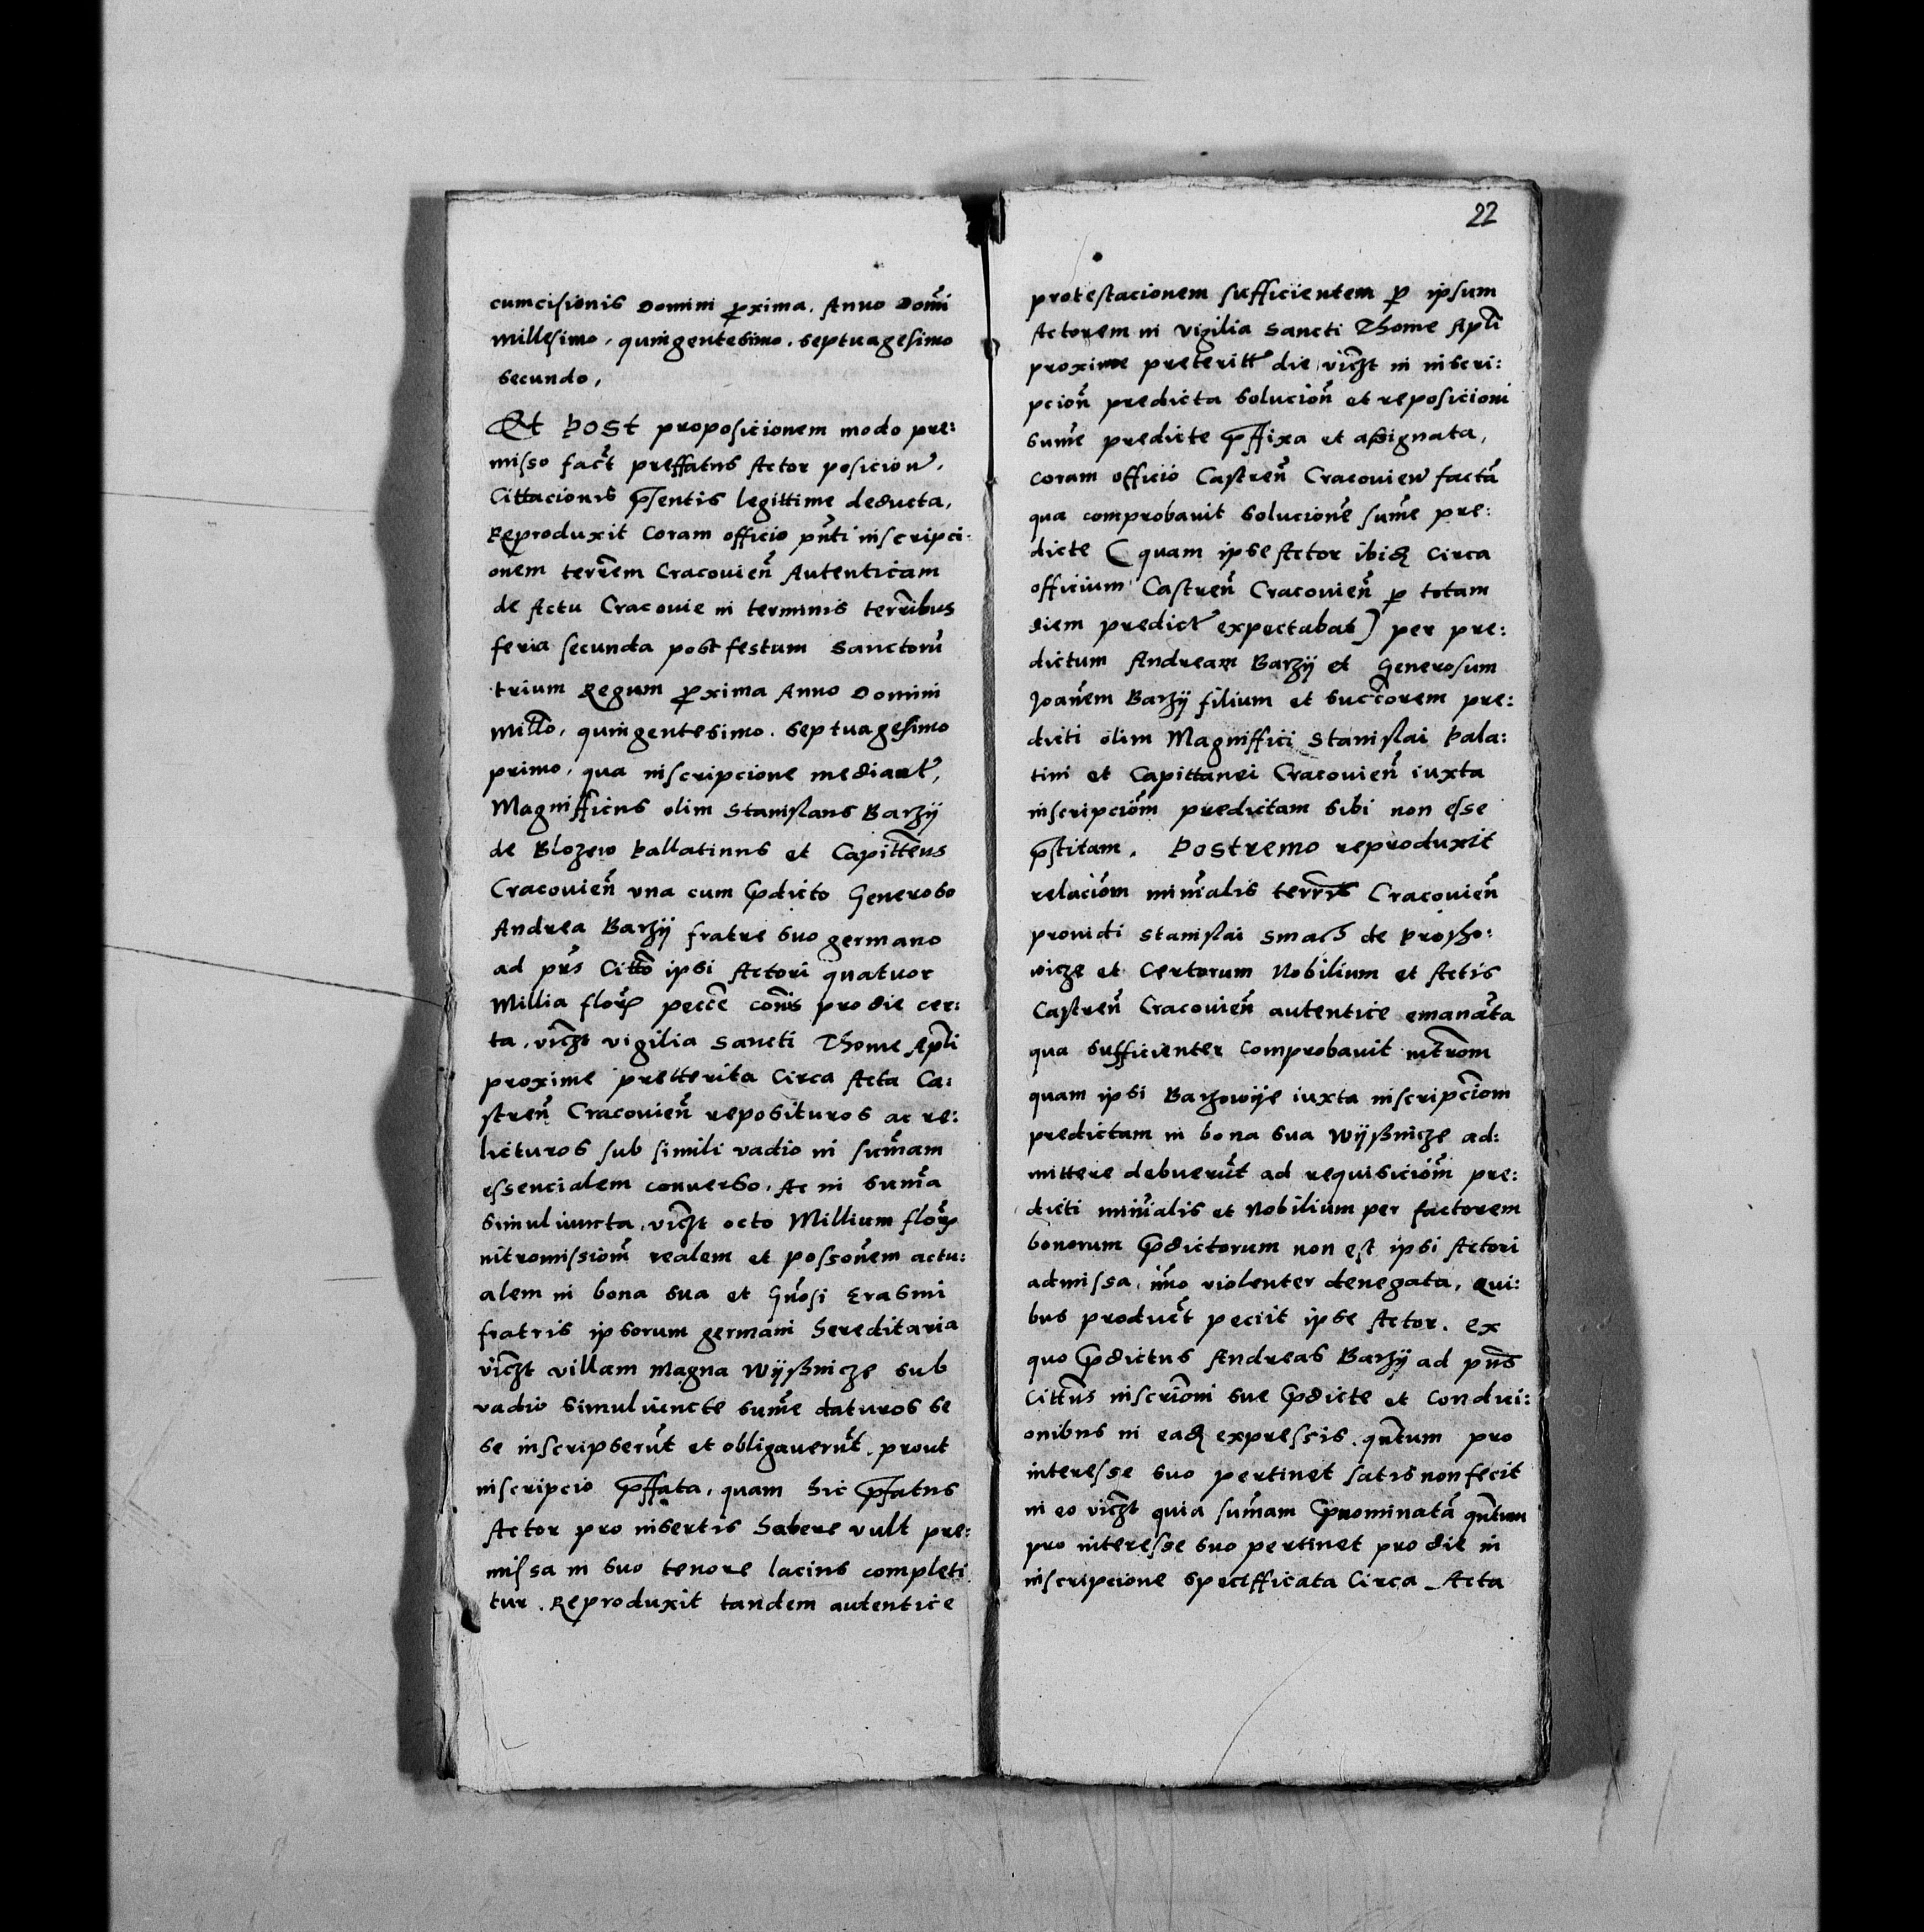 cumcisionis Domini p̱xima. Anno Domĩ
millesimo, quingentesimo. septuagesimo
secundo,
Et Post proposicionem modo pre:
misso fact̃ preffatus Actor posicion̄,
Cittacionis p̄sentis legittime deducta,
Reproduxit Coram officio pñti inscripci:
onem terr̃em Cracovieñ Autenticam
de Actu Cracovie in terminis terr̃ibus
feria secunda post festum Sanctorũ
trium Regum p̱xima Anno Domini
Millõ, quingentesimo. septuagesimo
primo, qua inscripcione mediant̃,
Magnifficus olim Stanislaus Barzÿ
de Blozew Pallatinus et Capitt̃eus
Cracovieñ una cum p̄dicto Generoso
Andrea Barzÿ fratre suo germano
ad pñs Citt̃o ipsi Actori quatuor
Millia flor̃ pecc̃e com̃is pro die cer:
ta, vicz̃t vigilia Sancti Thome Apl̃i
proxime pretterita Circa Acta Ca:
streñ Cracovieñ reposituros ac re:
licturos sub simili vadio in sum̃am
essencialem converso. Ac in sum̃a
simul iuncta, vicz̃t octo Millium flor̃
intromissiom̃ realem et possoñem actu:
alem in bona sua et Gñosi Erasmi
fratris ipsorum germani hereditaria
vicz̃t villam Magna Wÿßnicze sub
vadio simul iuncte sum̃e daturos se
se inscripserũt et obligaverũt. prout
inscripcio p̄ffata, quam hic p̄fatus
Actor pro insertis habere vult pre:
missa in suo tenore lacius completi
tur. Reproduxit tandem autentice
22
protestacionem sufficientem p̱ ipsum
Actorem in vigilia Sancti Thome Apl̃i
proxime preteritt̃ die vicz̃t in inscri:
pcioñ predicta solucioñ et reposicioni
sum̃e predicte p̄ffixa et assignata,
coram officio Castreñ Cracovien̄ factã
qua comprobavit solucionẽ sum̃e pre:
dicte ( quam ipse Actor ibiđ Circa
officium Castreñ Cracovieñ p̱ totam
diem predict̃ expectabat) per pre:
dictum Andream Barzÿ et Generosum
Joañem Barzÿ filium et succ̃orem pre:
dicti olim Magniffici Stanislai Pala:
tini et Capittanei Cracovieñ iuxta
inscripciom̃ predictam sibi non esse
p̄stitam. Postremo reproduxit
relaciom̃ miñialis terr̃is Cracovieñ
providi Stanislai Smach de Proszo:
vicze et Certorum Nobilium et Actis
Castreñ Cracovieñ autentice emanãta
qua sufficienter comprobavit intr̃om
quam ipsi Barzowije iuxta inscripc̃iom
predictam in bona sua Wÿßnicze ad:
mittere debuerũt ad requisiciom̃ pre:
dicti miñialis et Nobilium per factorem
bonorum p̄dictorum non est ipsi Actori
admissa, im̃o violenter denegata, Qui:
bus product̃ peciit ipse Actor. ex
quo p̄dictus Andreas Barzÿ ad pñs
Citt̃us inscriõni sue p̄dicte et Condici:
onibus in eađ expressis. qñtum pro
interesse suo pertinet satis non fecit
in eo vicz̃t quia sum̃am p̄nominatã qñtum
pro interesse suo pertinet pro die in
inscripcione speciffi​cata Circa Acta